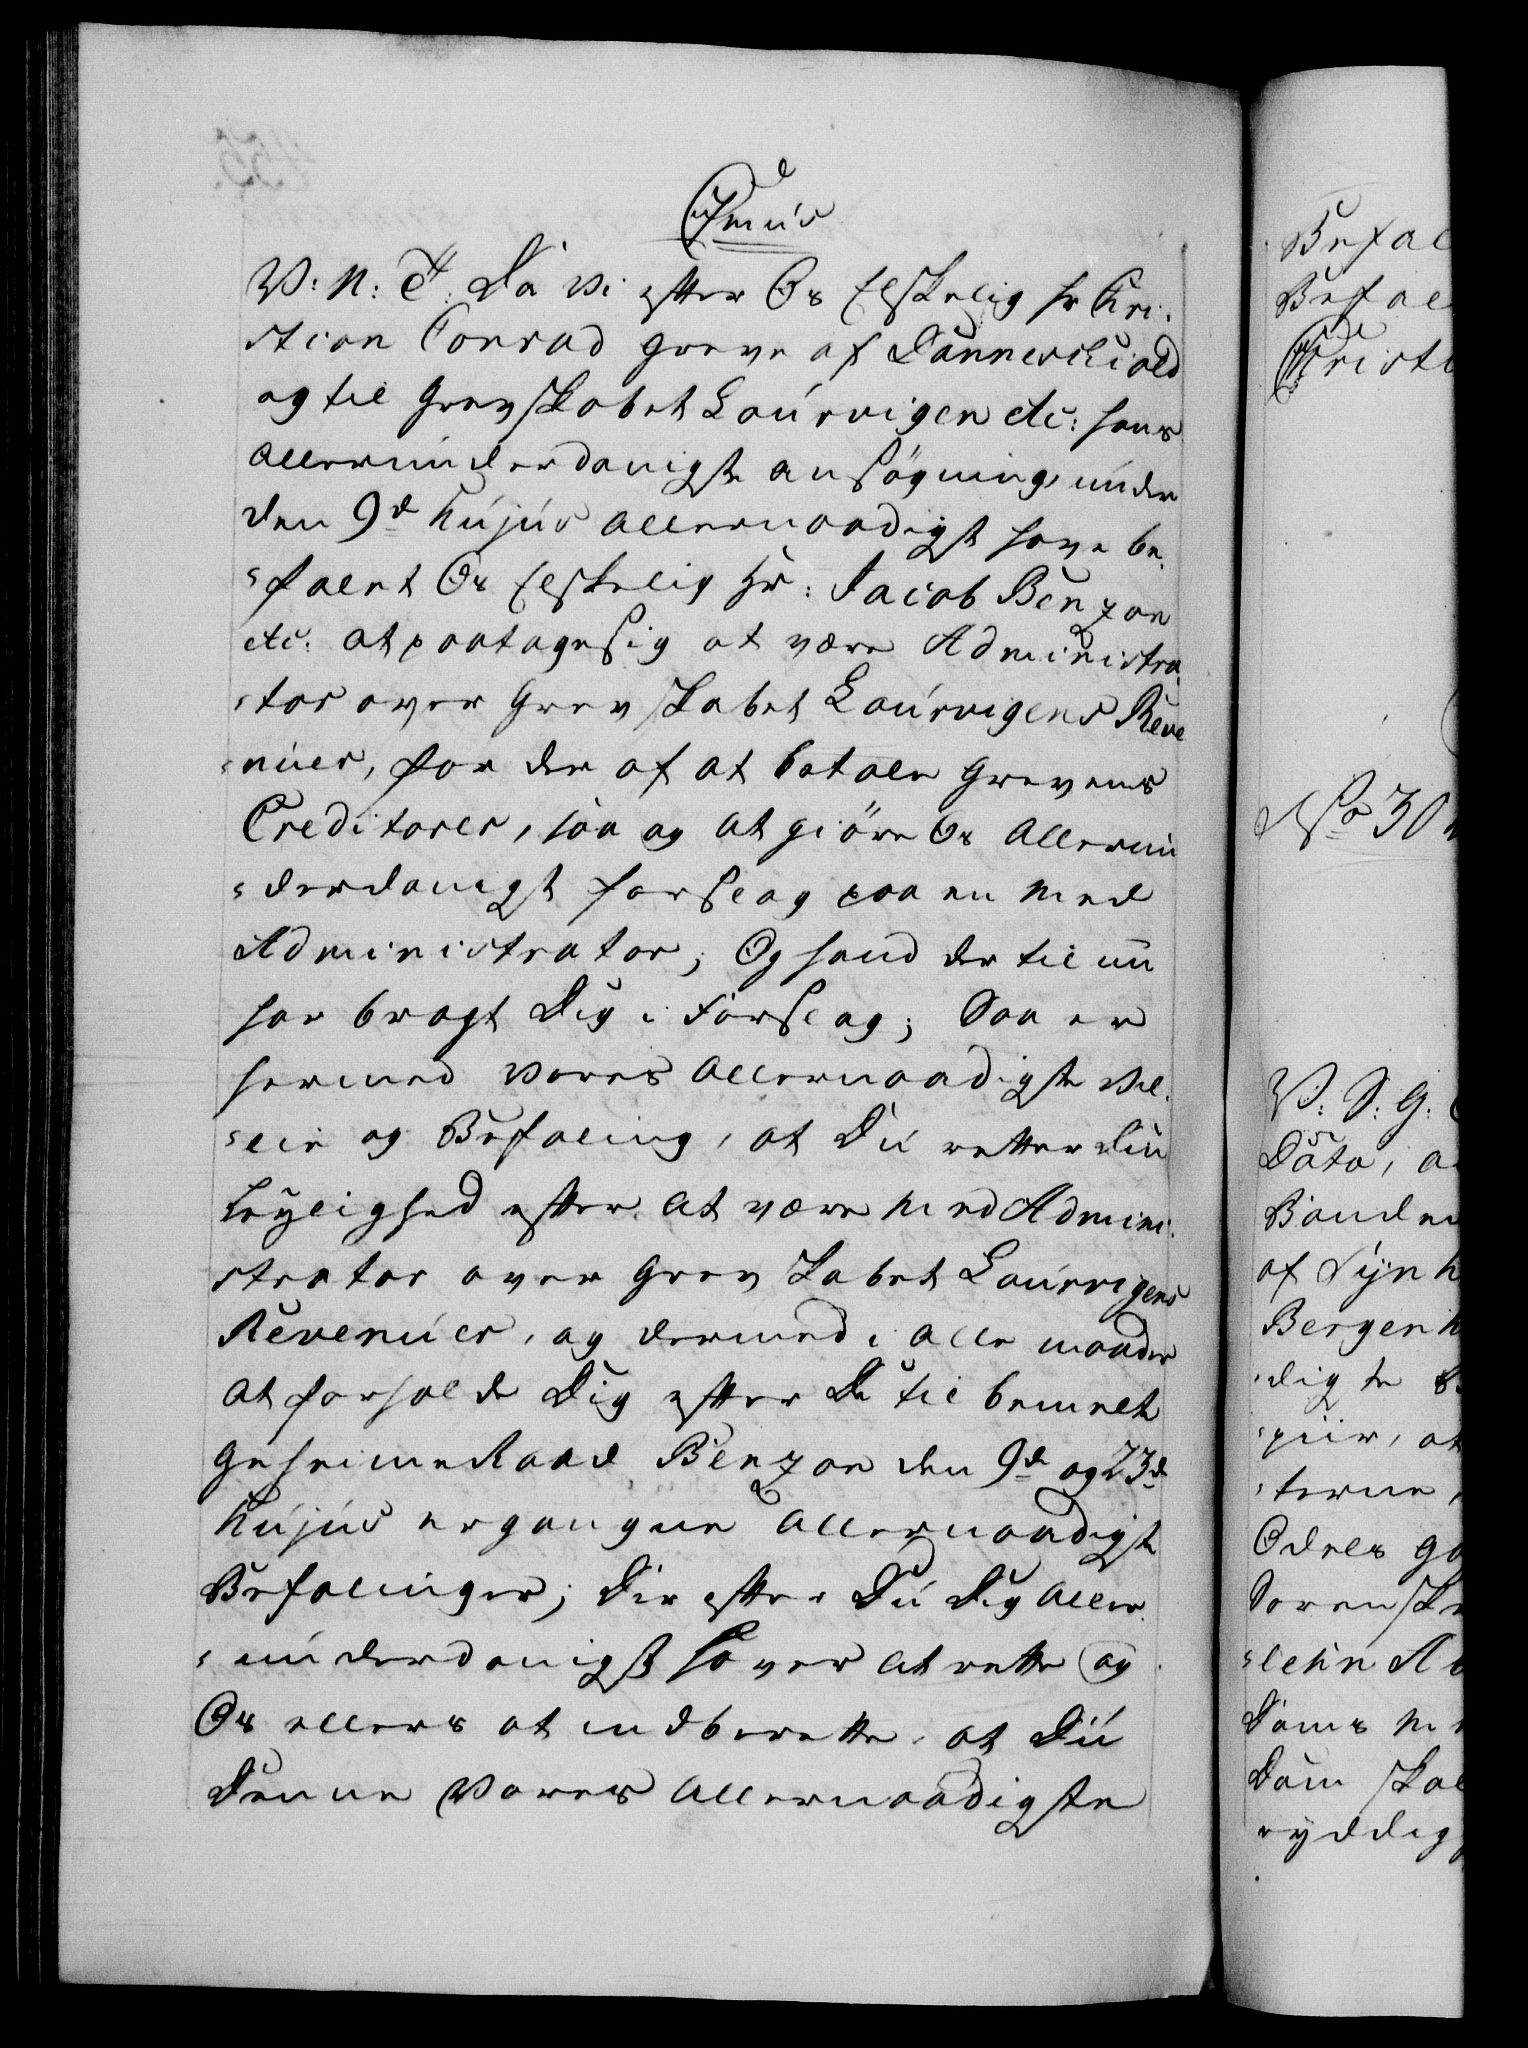 Cmus
V: N: T: Da Vi efter Os Elskelig hr Chri-
stian Conrad Greve af Dannerskiold
og til Grevskabet Laurvigen etc: hans
allerunderdanigste ansøgning, under
den 9de hujus allernaadigst have be-
-falet Os Elskelig Hr: Jacob Benzon
etc: at paatage sig at være Administra-
-tor over Grevskabet Laurvigens Reve
-nuer, for der af at betale Grevens
Creditorer, saa og at giøre Os allerun
-derdanigst forslag paa en Med
Administrator; Og hand der til nu
har bragt Dig i Forslag; Saa er
hermed Vores allernaadigste Vil-
-lie og Befaling, at Du retter din
Leylighed efter at være Med Admini-
strator over Grevskabet Laurvigens
Revenuer, og dermed i alle maader
at forholde Dig efter De til bemelte
GeheimeRaad Benzon den 9de og 23de
hujus ergangne allernaadigste
Befalinger; Der efter Du Dig aller-
-underdanigst haver at rette og
Os ellers at indberette, at Du
Denne Vores allernaadigste
Befal
Befal
Christi
No 30
V: S: G:
Dato, a
Bonden
af
Bergenh
-digste
-piir, at
-terne,
Odels go
Sorensk
-lehn A
Doms M
Dom skal
ryddig